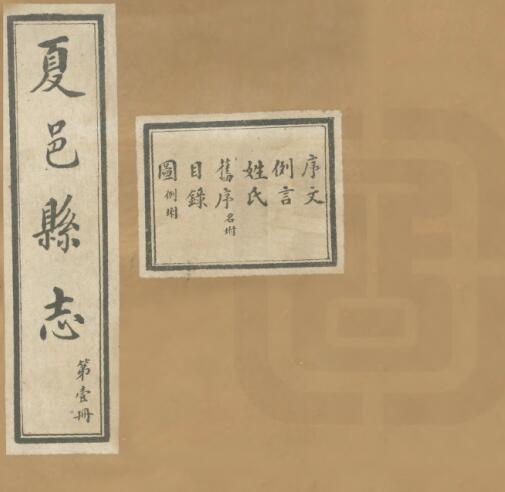 夏邑縣志
第壹冊
序文
例言
姓氏
舊序名坿
目錄
圖例坿